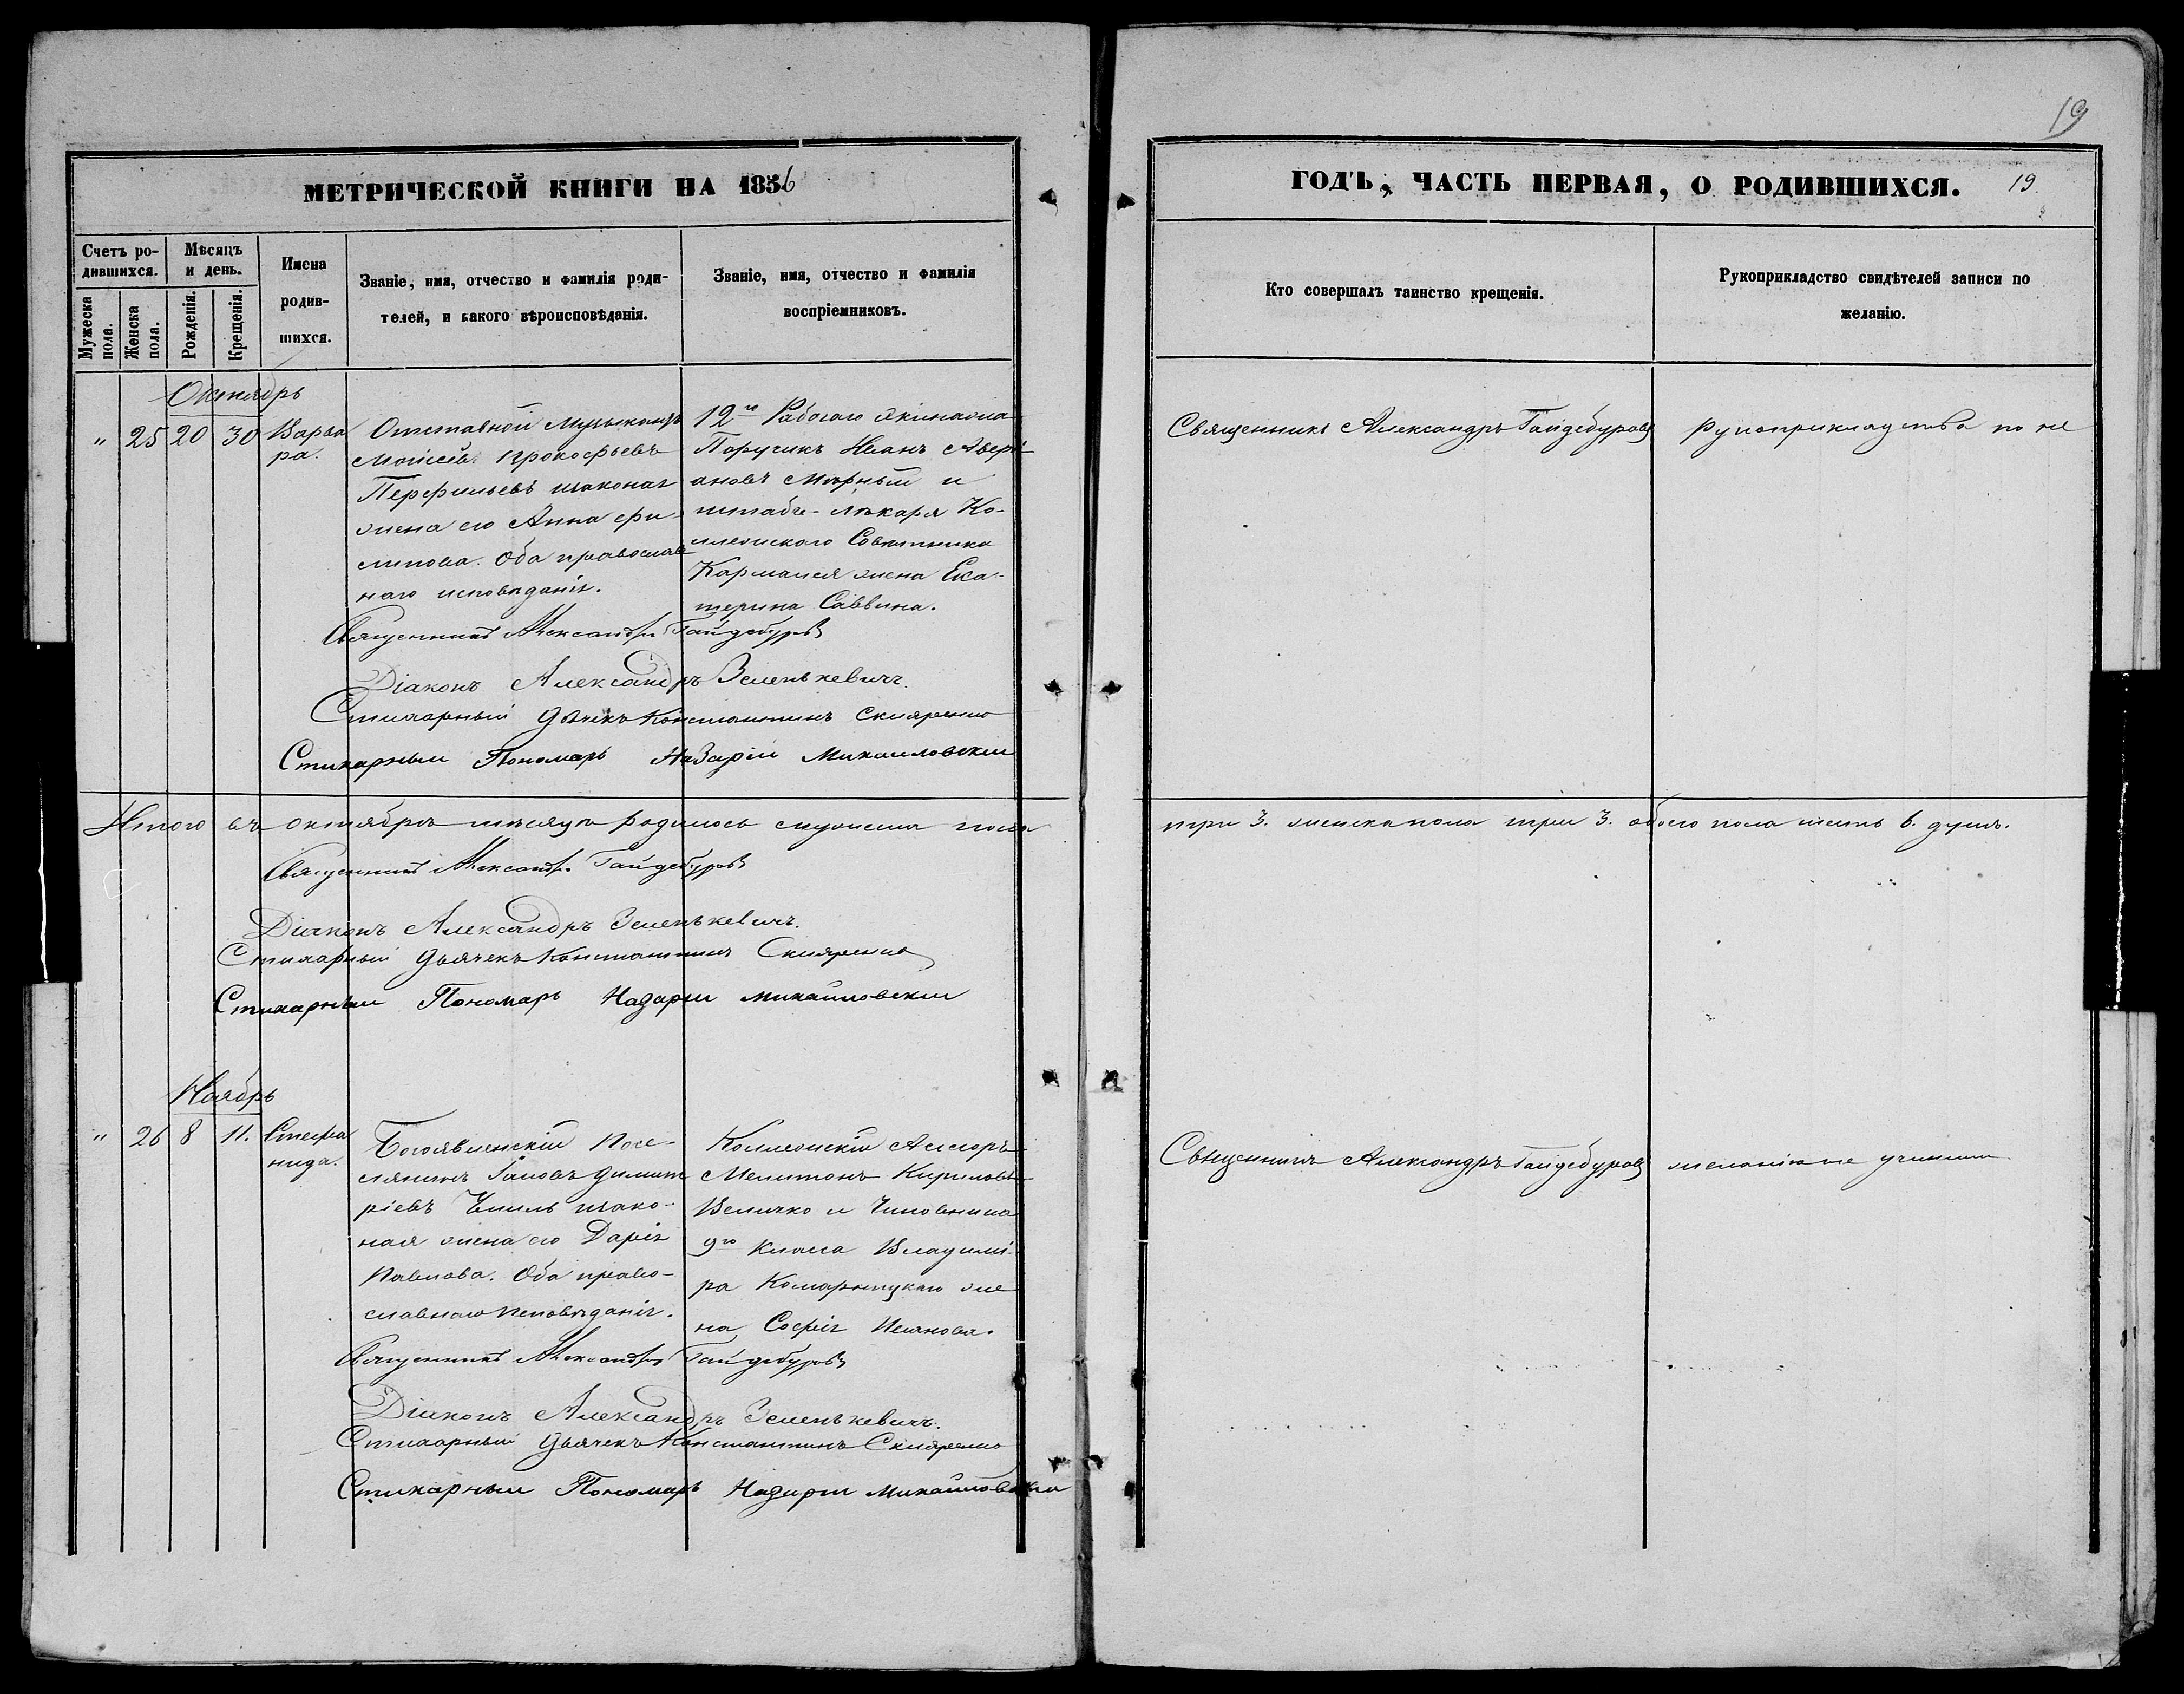 19
МЕТРИЧЕСКОЙ КНИГИ НА 1856
Счетъ ро-
дившихся.
Мужеска
пола.
Женска
пола.
Мѣсяцъ
и день.
Рожденія.
Крещенія.
Имена
родив-
шихся.
Званіе, имя, отчество и фамилія роди-
телей, и какого вѣроисповѣданія.
Званіе, имя, отчество и фамилія
воспріемниковъ.
Октябрь
" 25 20 30
Варва
ра.
Отставной Музыкантъ
Моисей Прокофьевъ
Перфильевъ изаконая
жена его Анна Фи-
липова. Оба православ
наго исповѣданія.
12го Рабочаго Экипажа
Поручикъ Иванъ Авері-
ановъ Мирный и
штабъ-лѣкаря Ко-
лежскаго Совѣтника
жена Ека-
терина Саввина.
Священникъ Александръ Гайдебуровъ
Діаконъ Александръ Зеленькевичъ.
Стихарный Дьячекъ Константинъ Скляренко
Стихарный Пономарь Назарій Михайловскій
Итого въ октябрѣ мѣсяцѣ родилось мужеска пола
Священникъ Александръ Гайдебуровъ
Діаконъ Александръ Зеленькевичъ.
Стихарный Дьячекъ Константинъ Скляренко
Стихарный Пономарь Назарій Михайловскій
Ноябрь
" 26 8 11.
Стефа
нида.
Богоявленскій Посе-
лянинъ Іаковъ Димит
ріевъ изако-
ная жена его Дарія
Павлова. Оба право-
славнаго исповѣданія.
Коллежскій Ассесоръ
Мелитонъ Кириловъ
Величко и Чиновника
9го класса Владимі-
ра Комарницкаго же
на Софія Иванова.
Священникъ Александръ Гайдебуровъ
Діаконъ Александръ Зеленькевичъ.
Стихарный Дьячекъ Константинъ Скляренко
Стихарный Пономарь Назарій Михайловскій
ГОДЪ, ЧАСТЬ ПЕРВАЯ, О РОДИВШИХСЯ. 19.
Кто совершалъ таинство крещенія.
Рукоприкладство свидѣтелей записи по
желанію.
Священникъ Александръ Гайдебуровъ
Рукоприкладства по не
три 3. женска пола три 3. обоего пола шесть 6. душъ.
Священникъ Александръ Гайдебуровъ
желанію не учинили